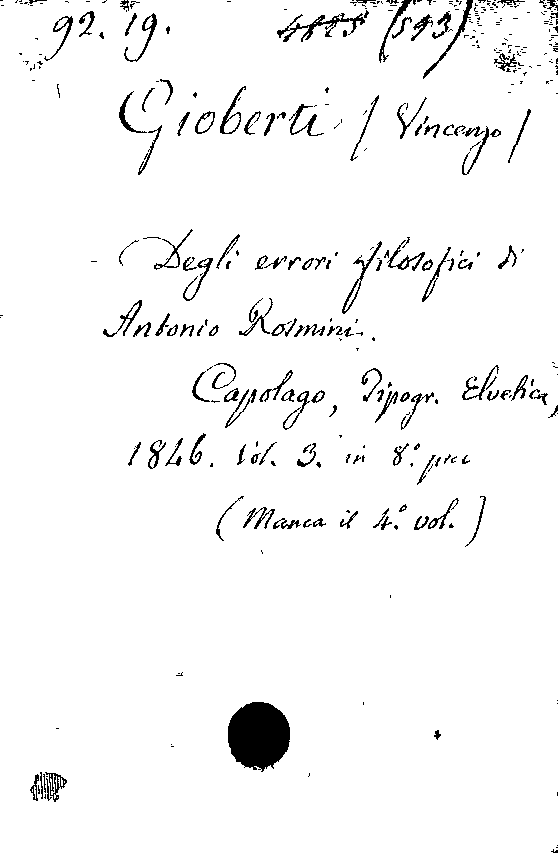 92. 19. (593)
Gioberti (Vincenzo)
Degli errori filosofici di
Antonio Rosmini.
Capolago, Tipogr. Elvetica,
1846. Vol. 3. in 8.° picc
(Manca il 4.° vol.)